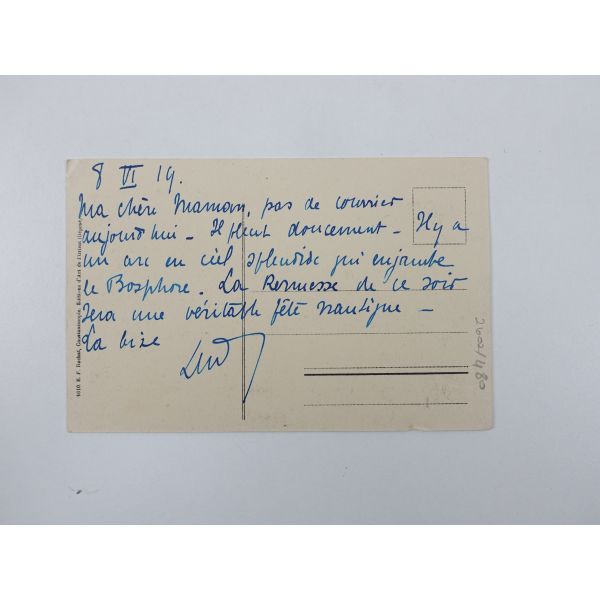 8 VI 19.
Ma chère Maman, pas de courrier
aujourd'hui – Il pleut doucement – Il y a
un arc en ciel splendide qui enjambe
le Bosphore. La Kermesse de ce soir
sera une véritable fête nautique –
La bise
4010 E. F. Rochat, Constantinople, Editions d'Art de l'Orient